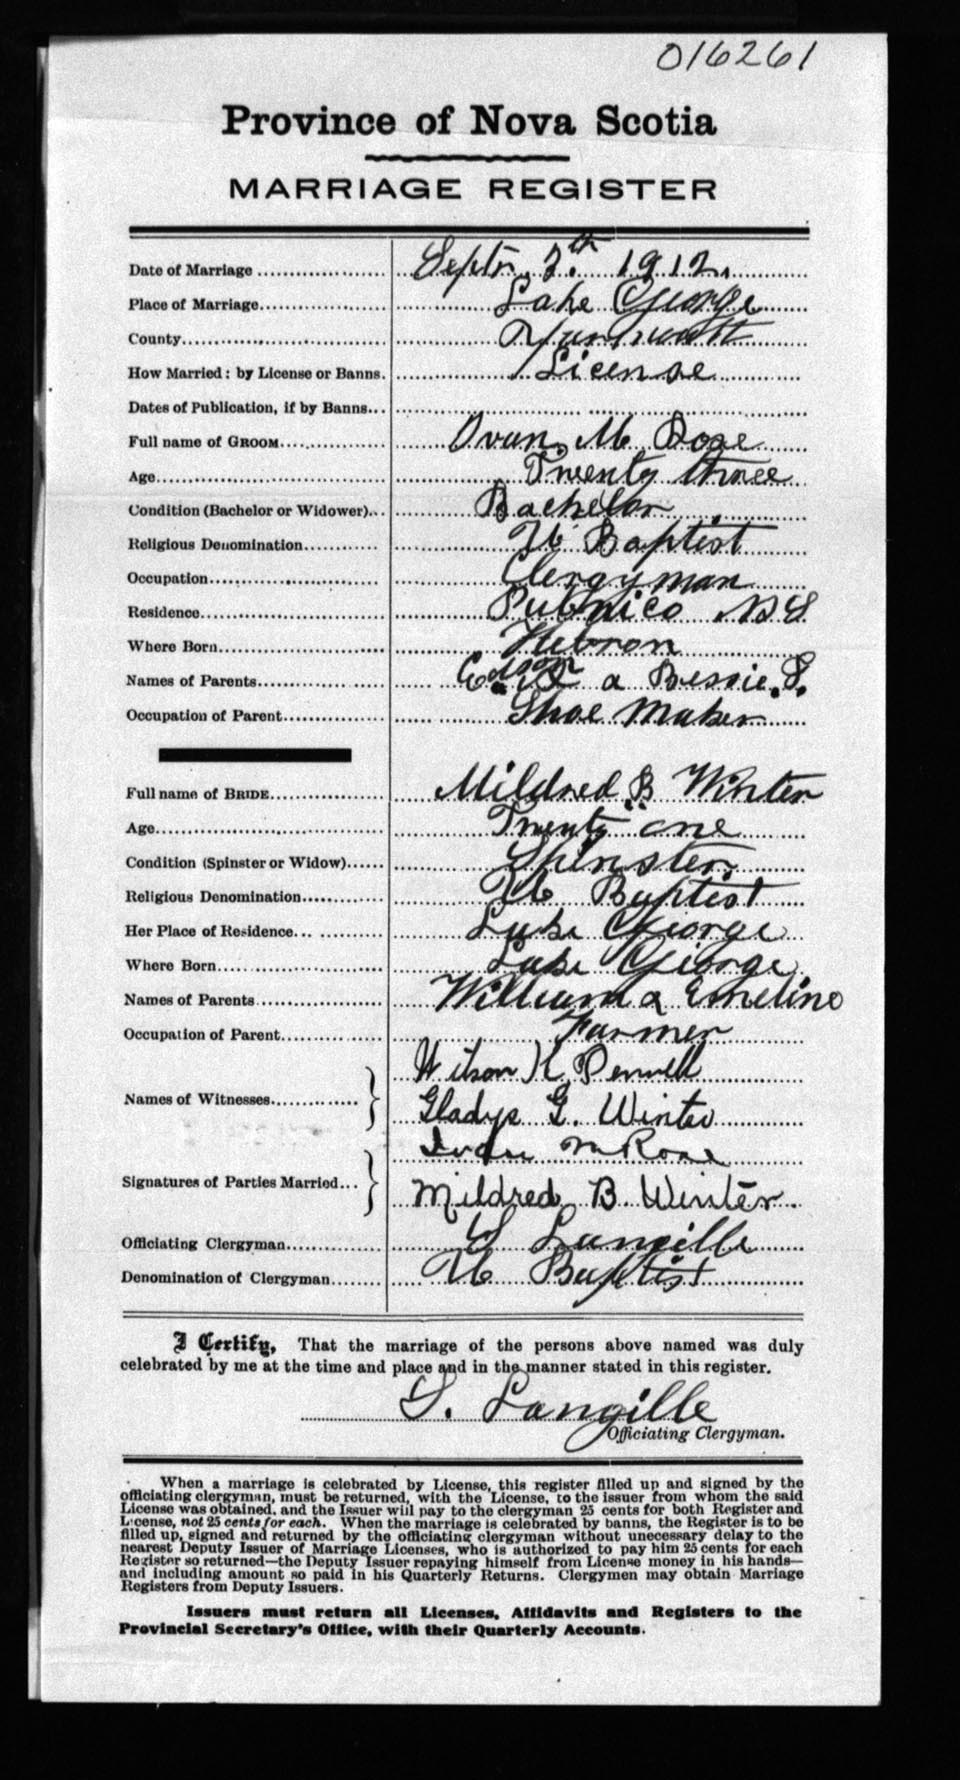 016261
Province of Nova Scotia
MARRIAGE REGISTER
Date of Marriage Septr. 7th 1912.
Place of Marriage Lake George
County Yarmouth
How Married: by License or Banns. License
Dates of Publication, if by Banns
Full name of GROOM Ivan M Rose
Age Twenty three
Condition (Bachelor or Widower) Bachelor
Religious Denomination U Baptist
Occupation Clergyman
Residence Pubnico N S
Where Born Hebron
Names of Parents Edson & Bessie. S.
Occupation of Parent Shoe Maker
Full name of BRIDE Mildred B Winter
Age Twenty one
Condition (Spinster or Widow) Spinster
Religious Denomination U Baptist
Her Place of Residence Lake George
Where Born Lake George
Names of Parents William & Emeline
Occupation of Parent Farmer
Names of Witnesses Wilson K
Gladys G. Winter
Signatures of Parties Married Ivan M Rose
Mildred B. Winter.
Officiating Clergyman S Langille
Denomination of Clergyman U Baptist
I Certify, That the marriage of the persons above named was duly
celebrated by me at the time and place and in the manner stated in this register.
S. Langille
Officiating Clergyman.
When a marriage is celebrated by License, this register filled up and signed by the
officiating clergyman, must be returned, with the License, to the issuer from whom the said
License was obtained, and the Issuer will pay to the clergyman 25 cents for both Register and
License, not 25 cents for each. When the marriage is celebrated by banns, the Register is to be
filled up, signed and returned by the officiating clergyman without unnecessary delay to the
nearest Deputy Issuer of Marriage Licenses, who is authorized to pay him 25 cents for each
Register so returned—the Deputy Issuer repaying himself from License money in his hands—
and including amount so paid in his Quarterly Returns. Clergymen may obtain Marriage
Registers from Deputy Issuers.
Issuers must return all Licenses, Affidavits and Registers to the
Provincial Secretary's Office, with their Quarterly Accounts.